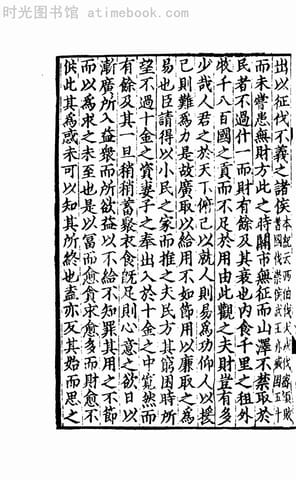 时光图书馆 - atimebook.com
出以征伐不義之諸侯本紀云西伯伐犬戎伐密須敗
耆國伐崇侯武王亦滅國五十
而未嘗患無財方此之時關市無征而山澤不禁取於
民者不過什一而財有餘及其衰也內食千里之租外
收千八百國之貢而不足於用由此觀之夫財豈有多
少哉人君之於天下俯己以就人則易為功仰人以援
己則難為力是故廣取以給用不如節用以廉取之為
易也臣請得以小民之家而推之夫民方其窮困時所
望不過十金之資妻子之奉出入於十金之中寬然而
有餘及其一旦稍稍蓄聚衣食既足則心意之欲日以
漸廣所入益衆而所欲益以不給不知罪其用之不節
而以為求之未至也是以富而愈貪求愈多而財愈不
供此其為惑未可以知其所終也盍亦反其始而思之